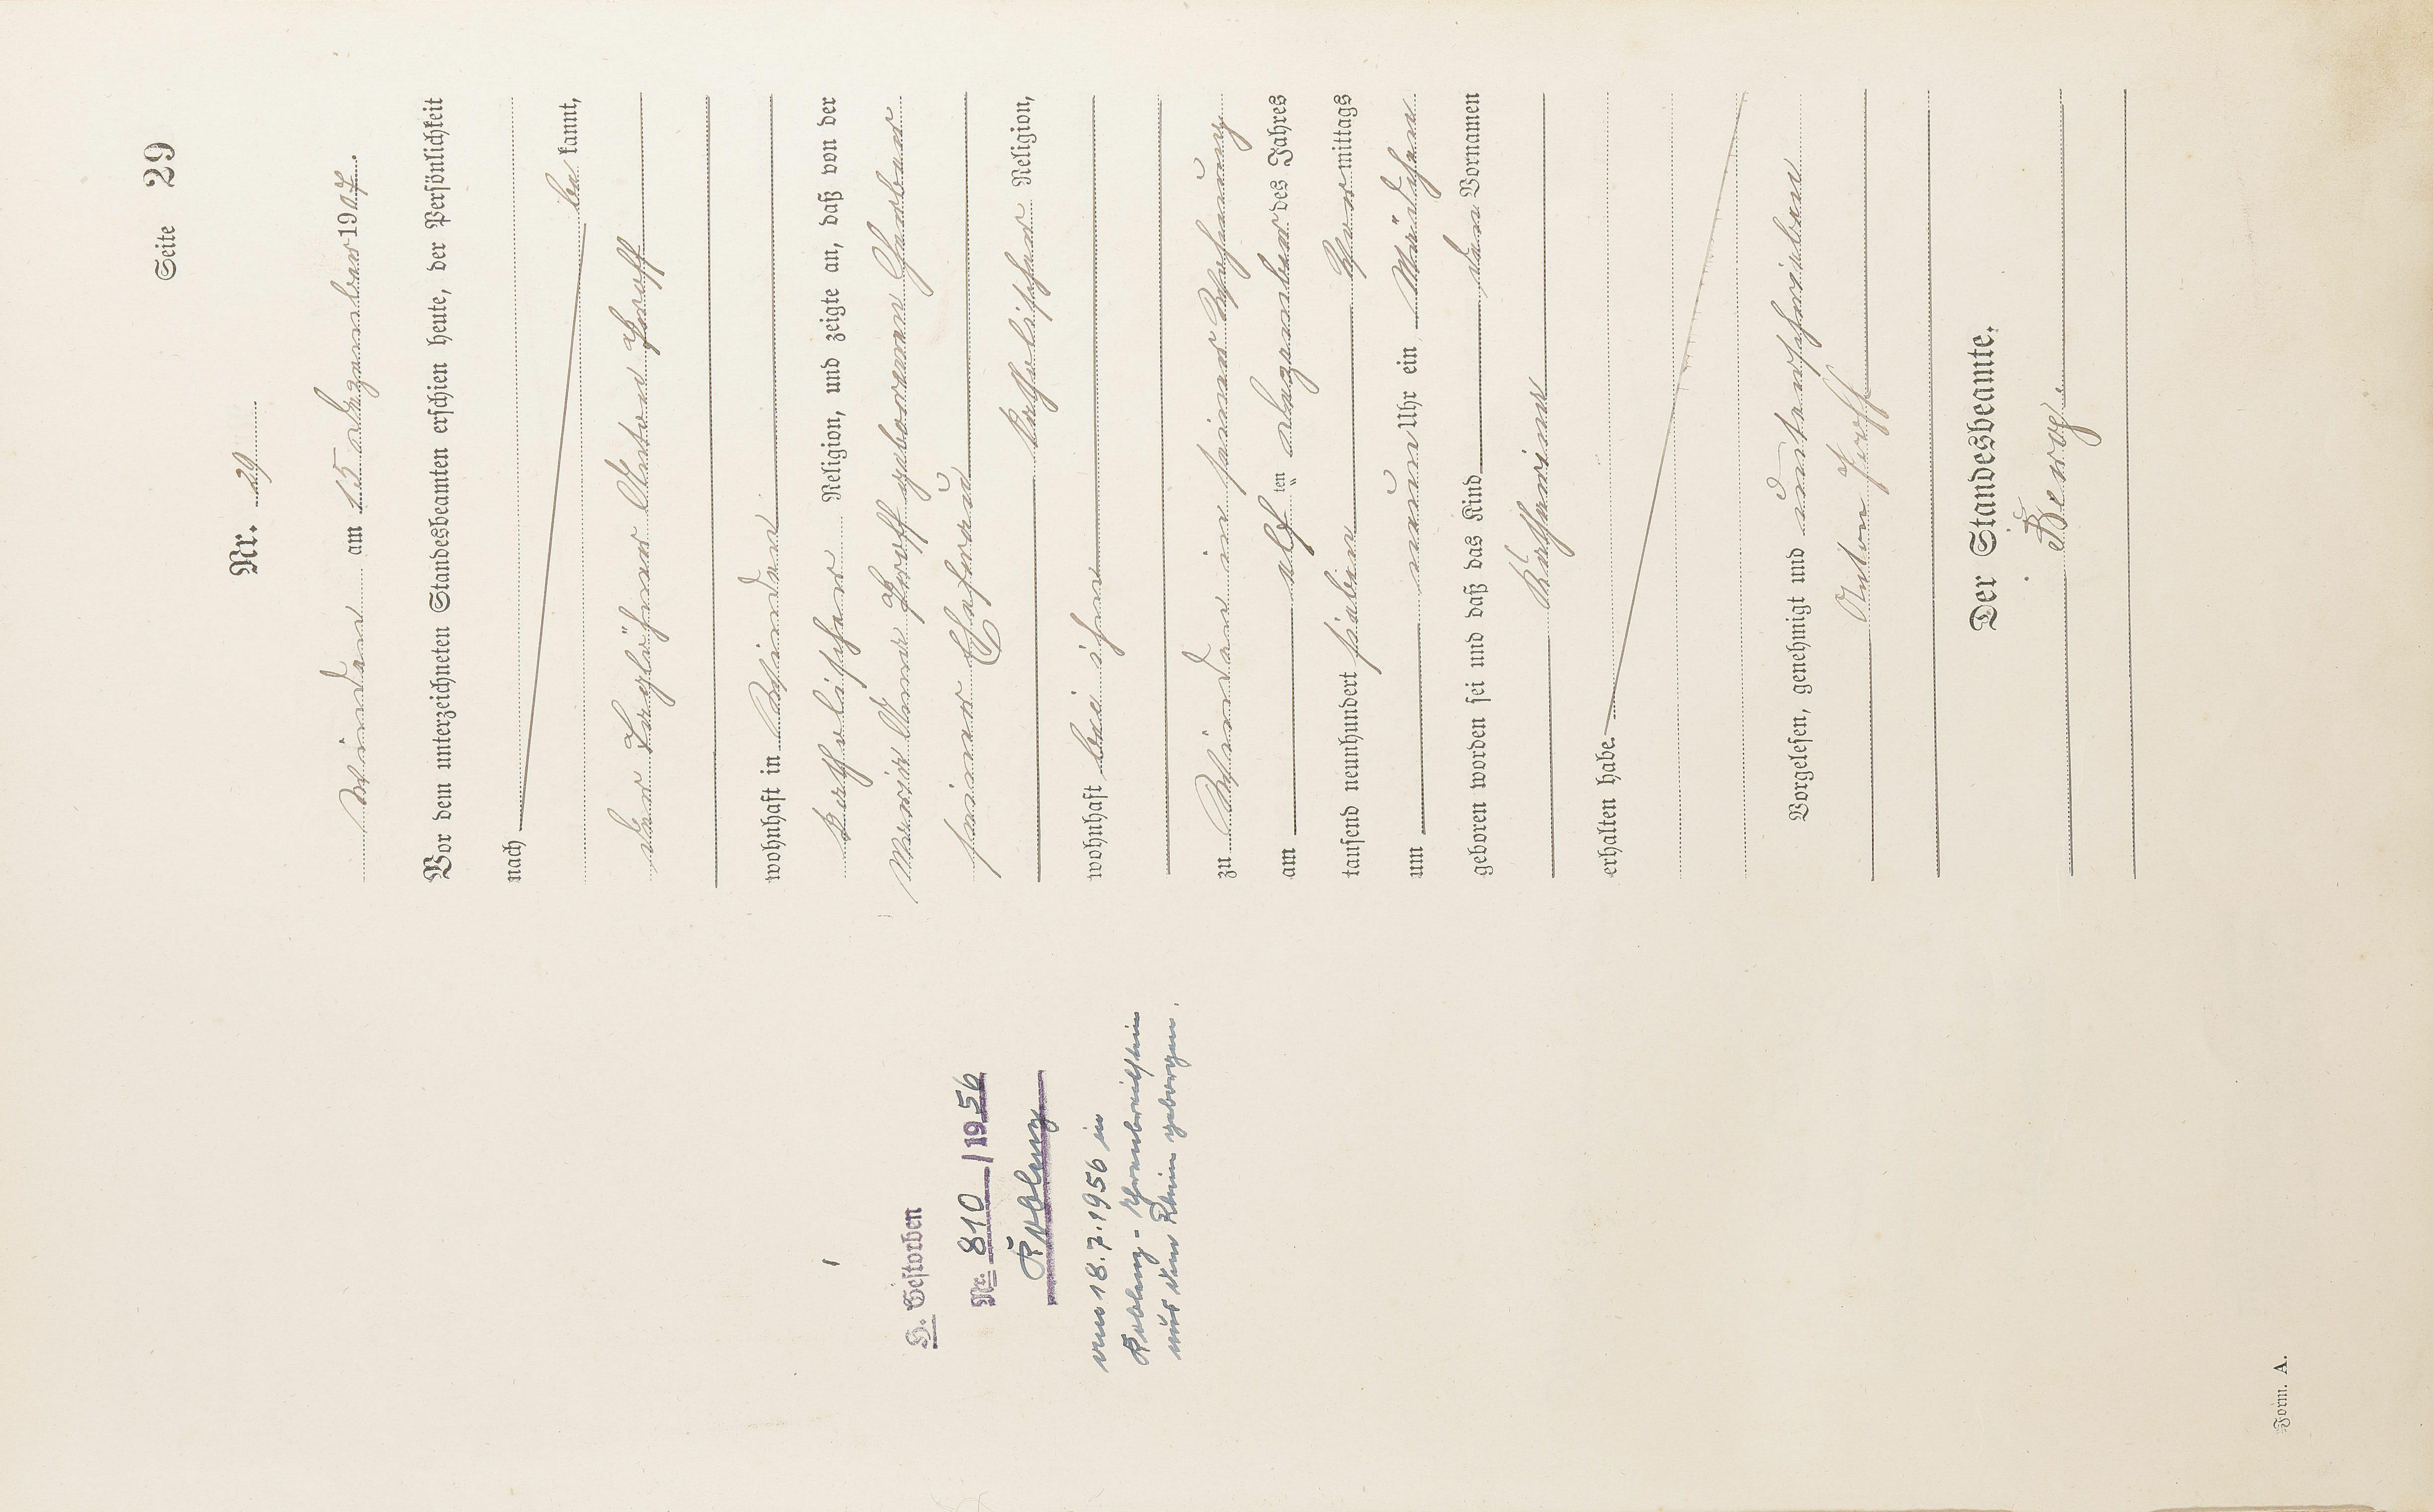 Seite 29
Nr. 29
Winden am 15 Dezember 1907.
Vor dem unterzeichneten Standesbeamten erschien heute, der Persönlichkeit
nach
be kannt,
der Taglöhner Anton Proff
wohnhaft in Winden
katholischer Religion, und zeigte an, daß von der
Maria Anna Proff geborenen
seiner Ehefrau
katholischer Religion,
wohnhaft bei ihm
zu Winden in seiner Wohnung
am elf ten Dezember des Jahres
tausend neunhundert sieben Vor mittags
um neun Uhr ein Mädchen
geboren worden sei und daß das Kind den Vornamen
Katharina
erhalten habe.
Vorgelesen, genehmigt und unterschrieben
Anton Proff
Der Standesbeamte.
H. Gestorben
Nr. 810 / 1956
Koblenz
am 18.7.1956 in
Koblenz-Ehrenbreitstein
aus dem Rhein geborgen.
Form. A.